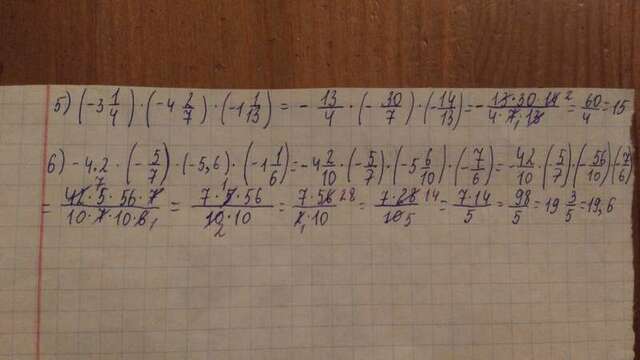 5) (-3 1/4) · (-4 2/7) · (-1 1/13) = - 13/4 · (- 30/7) · (- 14/13) = - 13·30·14 2/4·7 1·13 = 60/4 = 15
6) -4,2 · (- 5/7) · (-5,6) · (-1 1/6) = -4 2/10 · (- 5/7) · (-5 6/10) · (- 7/6) = - 42/10 · (5/7) · (- 56/10) (7/6)
= 7 42·5·56·7/10·7·10·6 1 = 7·5 1·56/10 2·10 = 7·56 28/2 1·10 = 7·28 14/10 5 = 7·14/5 = 98/5 = 19 3/5 = 19,6